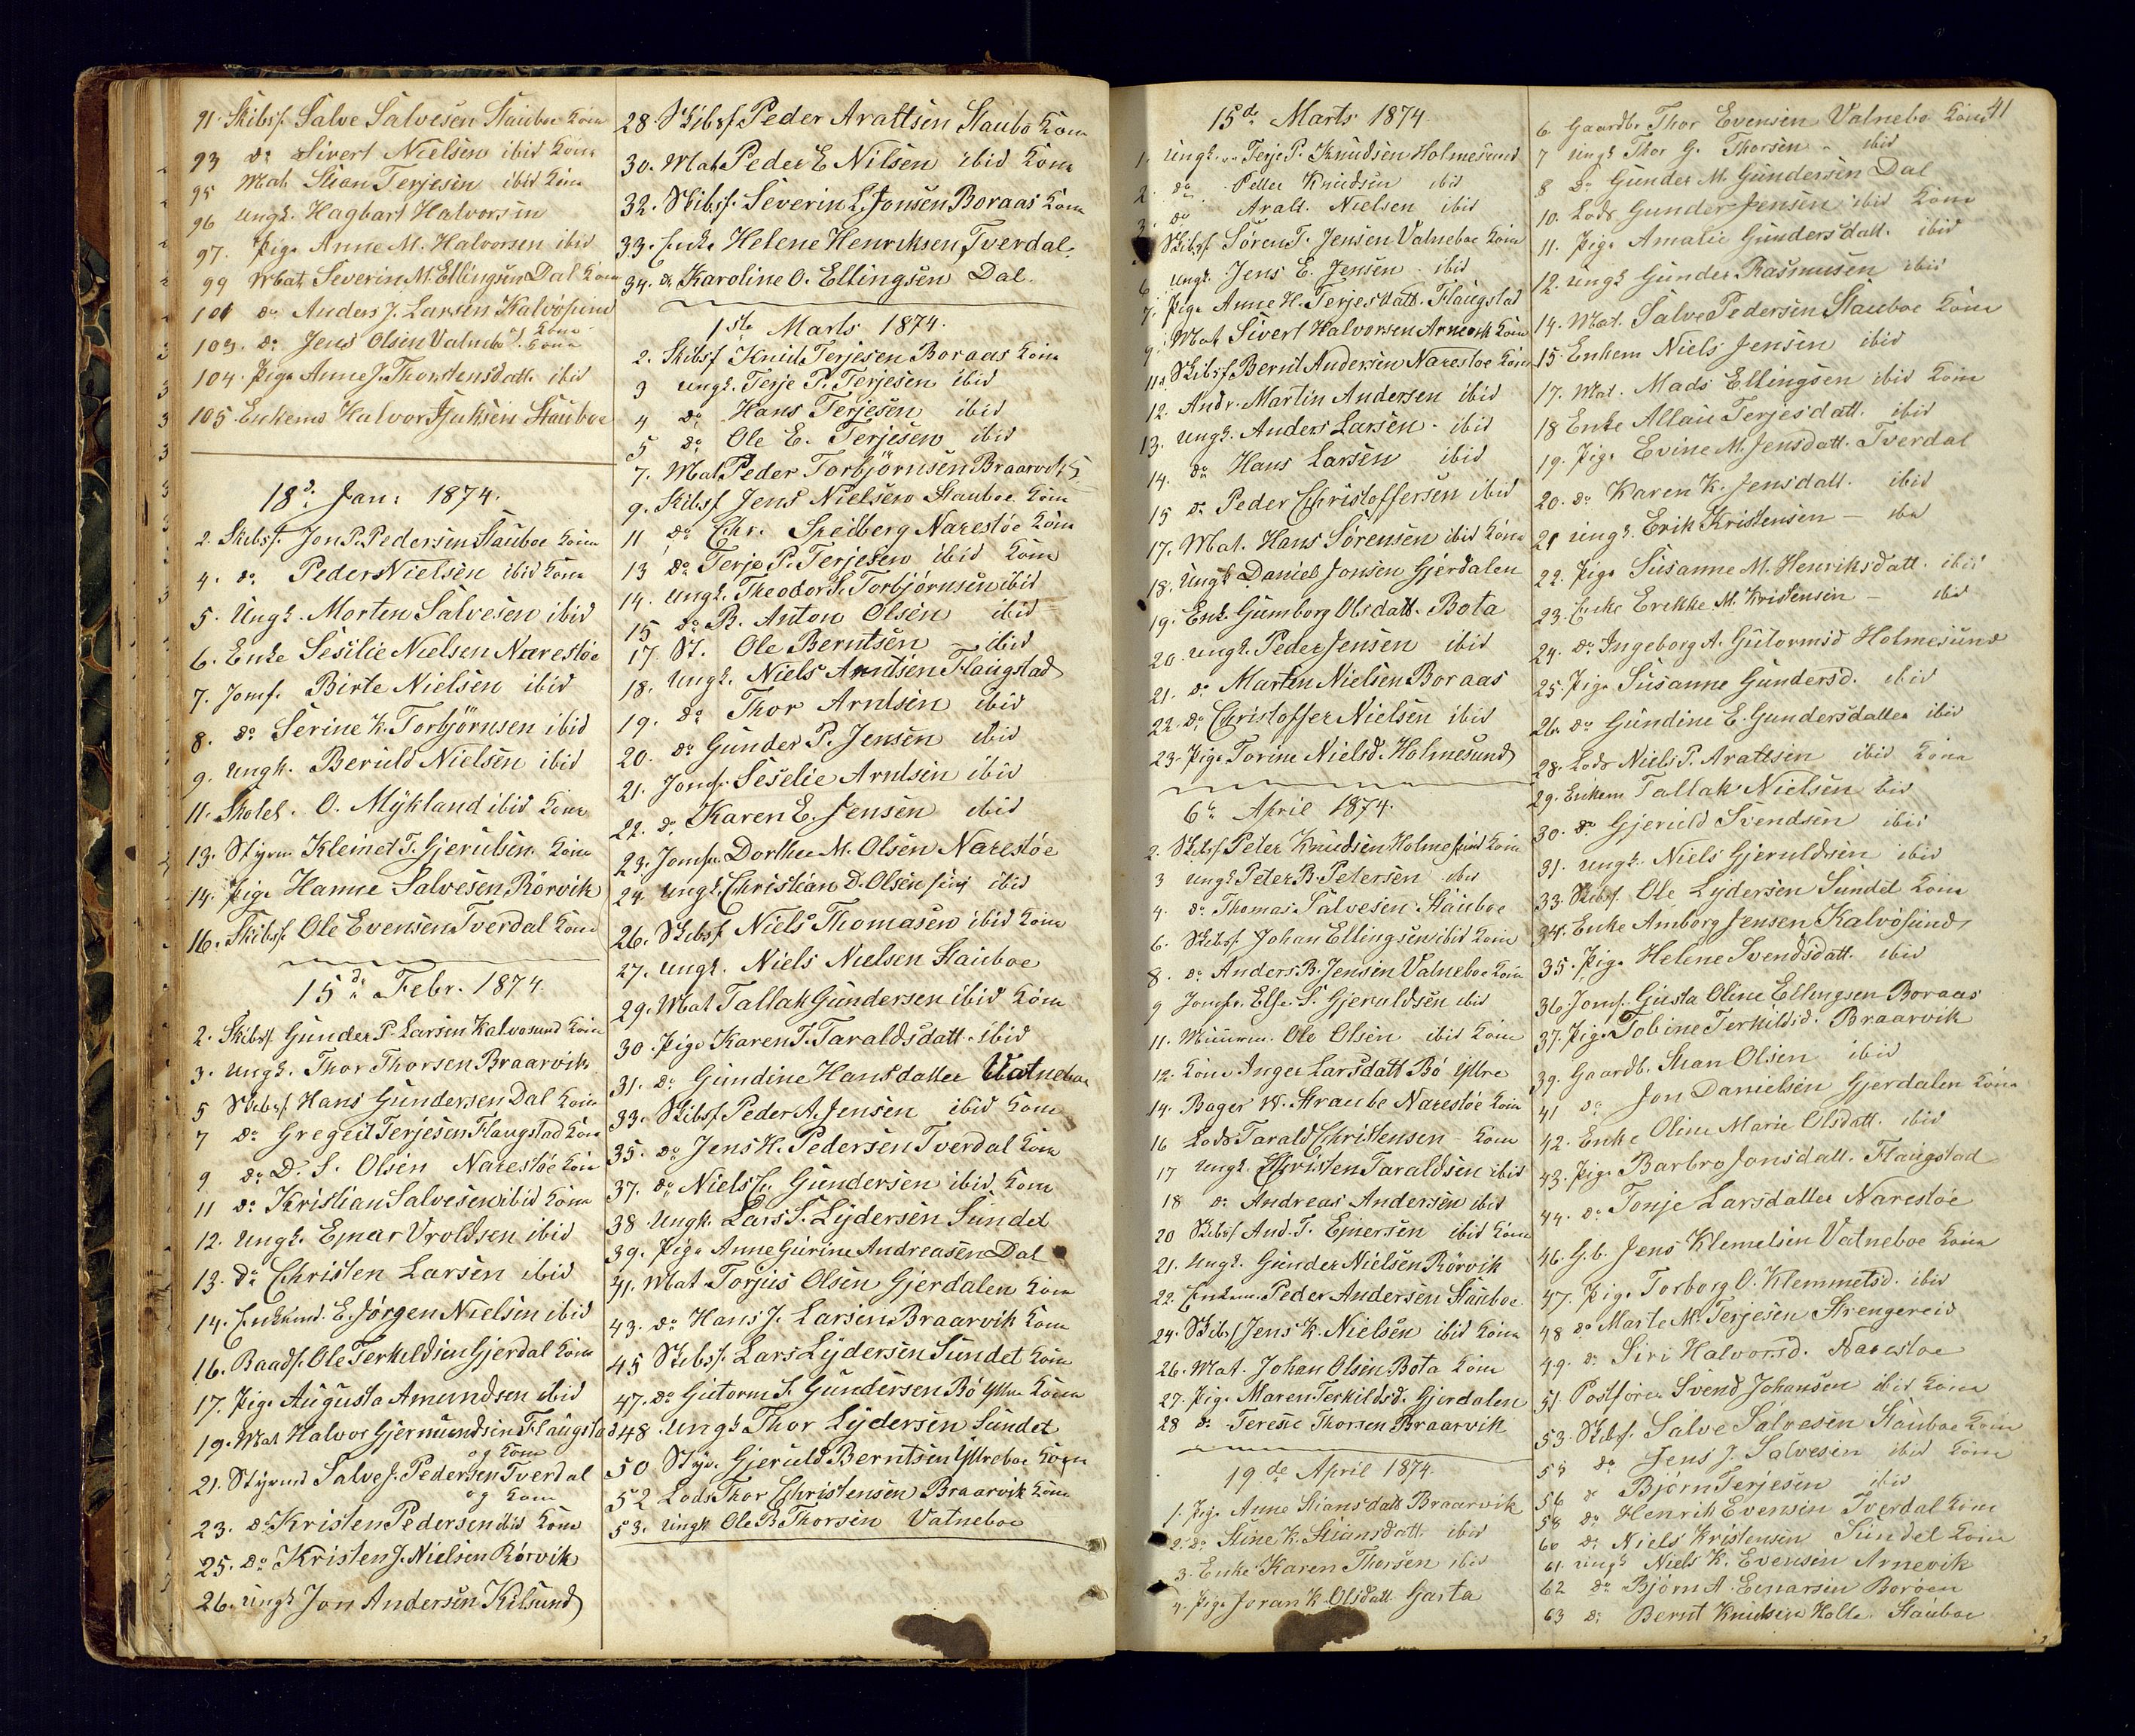 91. Skibsf. Salve Salvesen Stauboe Kone
93 do Sivert Nielsen ibid Kone
95 Mat. Stian Terjesen ibid Kone
96 Ungk. Hagbart Halvorsen
97. Pige Anne M. Halvorsen ibid
99 Mat. Severin M. Ellingsen Dal Kone
101 do Anders J. Larsen Kalvøsund
103. do Jens Olsen Valnebo og Kone
104. Pige Anne J. Thorstensdatt. ibid
105. Enkem. Halvor Isaksen Stauboe
18de Jan: 1874.
2. Skibsf. Jon P. Pedersen Stauboe Kone
4. do Peder Nielsen ibid Kone
5. Ungk. Morten Salvesen ibid
6. Enke Sesilie Nielsen Narestøe
7. Jomf. Birte Nielsen ibid
8. do Serine K. Torbjörnsen ibid
9. Ungk. Beruld Nielsen ibid
11. Skolel. O. Mÿkland ibid Kone
13. Styrm. Klemet T. Gjerulsen. Kone
14. Pige Hanne Salvesen Rörvik
16. Skibsf. Ole Evensen Tverdal Kone
15de Febr. 1874.
2. Skibsf. Gunder P. Larsen Kalvosund Kone
3. Ungk. Thor Thorsen Braarvik
5 Skibsf. Hans Gundersen Dal Kone
7 do Gregert Terjesen Flaugstad Kone
9 do D. S. Olsen Narestøe Kone
11 do Kristian Salvesen ibid Kone
12. Ungk. Ejnar Vroldsen ibid
13. do Christen Larsen ibid
14. Enkemd. E. Jørgen Nielsen ibid
16. Baadsf. Ole Terkeldsen Gjerdal Kone
17. Pige Augusta Amundsen ibid
19. Mat Halvor Gjermundsen Flaugstad
og Kone
21. Styrmd Salve J. Pedersen Tverdal
og Kone
23. do Kristen Pedersen ibid Kone
25. do Kristen J. Nielsen Rörvik
26. Ungk Jon Andersen Kilsund
28. Skibsf Peder Arattsen Staubo Kone
30. Mat Peder E Nilsen ibid Kone
32. Skibsf. Severin L. Jonsen Boraas Kone
33. Enke Helene Henriksen Tverdal.
34. do Karoline O. Ellingsen Dal.
1ste Marts 1874.
2. Skibsf Knud Terjesen Boraas Kone
3 Ungk. Terje P. Terjesen ibid
4 do Hans Terjesen ibid
5 do Ole E. Terjesen ibid
7. Mat Peder Torbjörnsen Braarvik
9. Skibsf Jens Nielsen Stauboe Kone
11 do Chr. Speilberg Narestøe Kone
13 do Terje P. Terjesen ibid Kone
14. Ungk. Theodor S. Torbjörnsen ibid
15 do B. Anton Olsen ibid
17 St. Ole Berntsen ibid
18. Ungk. Niels Arndsen Flaugstad
19. do Thor Arntsen ibid
20. do Gunder P. Jensen ibid
21. Jomf. Seselie Arntsen ibid
22. do Karen E. Jensen ibid
23. Jomfr. Dorthee M. Olsen Narestøe
24 Ungk. Christian D. Olsen ibid
26. Skibsf. Niels Thomasen ibid Kone
27. Ungk. Niels Nielsen Stauboe
29. Mat Tallak Gundersen ibid Kone
30. Pige Karen T. Taraldsdatt. ibid
31. do Gundine Hansdatter Vatneboe
33. Skibsf. Peder A. Jensen ibid Kone
35. do Jens H. Pedersen Tverdal Kone
37. do Niels Gundersen ibid Kone
38 Ungk. Lars S. Lydersen Sundet
39. Pige Anne Gurine Andreasen Dal
41. Mat Torjus Olsen Gjerdalen Kone
43. do Hans J. Larsen Braarvik Kone
45 Skibsf. Lars Lydersen Sundet Kone
47. do Gutorm S. Gundersen Bö Yttre Kone
48. Ungk Thor Lydersen Sundet
50 Styr. Gjeruld Berntsen Yttreboe Kone
52 Lods Thor Christensen Braarvik Kone
53. Ungk Ole B. Thorsen Vatneboe
15de Marts 1874.
1. Ungk. Terje P. Knudsen Holmesund
2. do Petter Knudsen ibid
3. do Aralt. Nielsen ibid
Skibsf. Søren T. Jensen Vatneboe Kone
6 Ungk. Jens E. Jensen ibid
7. Pige Anne H. Terjesdatt. Flaugstad
9. Mat Sivert Halvorsen Arnevik Kone
11. Skibsf. Bernt Andersen Narestøe Kone
12. Andr. Martin Andersen ibid
13. Ungk. Anders Larsen ibid
14. do Hans Larsen ibid
15 do Peder Christoffersen ibid
17. Mat. Hans Sörensen ibid Kone
18. Ungk Daniel Jonsen Gjerdalen
19. Enk. Gumborg Olsdatt. Bota
20. Ungk. Peder Jensen ibid
21. do Marten Nielsen Boraas
22. do Christoffer Nielsen ibid
23. Pige Torine Nielsd. Holmesund
6te April 1874.
2. Skibsf Peter Knudsen Holmesund Kone
3 Ungk Peter B. Petersen ibid
4. do Thomas Salvesen Stauboe
6. Skibsf. Johan Ellingsen ibid Kone
8. do Anders B. Jensen Vatneboe Kone
9 Jomfr. Else S. Gjeruldsen ibid
11. Ole Olsen ibid Kone
12. Kone Inger Larsdatt Bö Yttre
14. Bager W. Straube Narestøe Kone
16 Lods Tarald Christensen – Kone
17 Ungk. Christen Taraldsen ibid
18 do Andreas Andersen ibid
20 Skibsf And. T. Ejnersen ibid Kone
21. Ungk. Gunder Nielsen Rörvik
22. Enkem. Peder Andersen Stauboe
24. Skibsf Jens K. Nielsen ibid Kone
26. Mat. Johan Olsen Bota Kone
27. Pige Maren Terkildsd. Gjerdalen
28 do Terese Thorsen Braarvik
19de April 1874.
1. Pige Anne Stiansdatt Braarvik
2. do Stine K. Stiansdatt. ibid
3. Enke Karen Thorsen ibid
4. Pige Joran K. Olsdatt. Garta
41
6. Gaardb. Thor Evensen Vatnebo Kone
7 Ungk Thor G. Thorsen ibid
8 do Gunder M. Gundersen Dal
10. Lods Gunder Jensen ibid Kone
11. Pige Amalie Gundersdatt. ibid
12. Ungk Gunder Rasmusen ibid
14. Mat. Salve Pedersen Stauboe Kone
15. Enkem Niels Jensen ibid
17. Mat. Mads Ellingsen ibid Kone
18 Enke Allau Terjesdatt. ibid
19. Pige Evine M. Jensdatt. Tverdal
20. do Karen K. Jensdatt. ibid
21 Ungk. Erik Kristensen – ibid
22. Pige Susanne M. Henriksdatt. ibid
23. Enke Erikke M. Kristensen – ibid
24. do Ingeborg A. Gutormsd Holmesund
25. Pige Susanne Gundersd. ibid
26. do Gundine E. Gundersdatter ibid
28. Lods Niels P. Arattsen ibid Kone
29. Enkem Tallak Nielsen ibid
30. do Gjeruld Svendsen ibid
31. Ungk. Niels Gjeruldsen ibid
33. Skibsf. Ole Lydersen Sundet Kone
34. Enke Amborg Jensen Kalvösund
35. Pige Helene Svendsdatt. ibid
36. Jomf. Gusta Oline Ellingsen Boraas
37. Pige Tobine Terkildsd. Braarvik
39. Gaardb. Stian Olsen ibid
41 do Jon Danielsen Gjerdalen Kone
42. Enke Oline Marie Olsdatt. ibid
43. Pige Barbro Jonsdatt. Flaugstad
44. do Tonje Larsdatter Narestøe
46. G.b. Jens Klemetsen Vatneboe Kone
47. Pige Torborg O. Klemmetsd. ibid
48 do Marte M. Terjesen Strengereid
49. do Siri Halvorsd. Narestoe
51 Postfører Svend Johansen ibid Kone
53. Skibsf. Salve Salvesen Stauboe Kone
55 do Jens J. Salvesen ibid Kone
56 do Björn Terjesen ibid
58 do Henrik Evensen Tverdal Kone
60 do Niels Kristensen Sundet Kone
61. Ungk Niels K. Evensen Arnevik
62 do Bjørn A. Einarsen Borøen
63 do Bernt Knudsen Holte. Stauboe